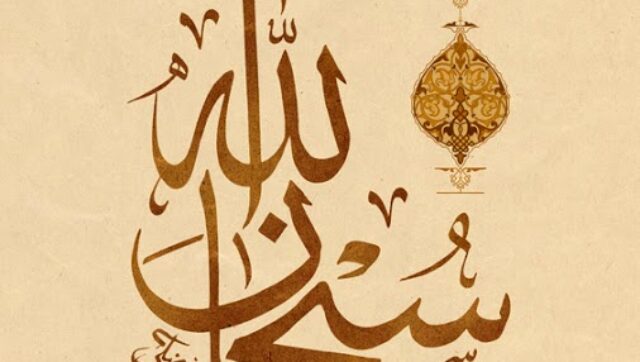 سُبْحٰنَ اللّٰهِ